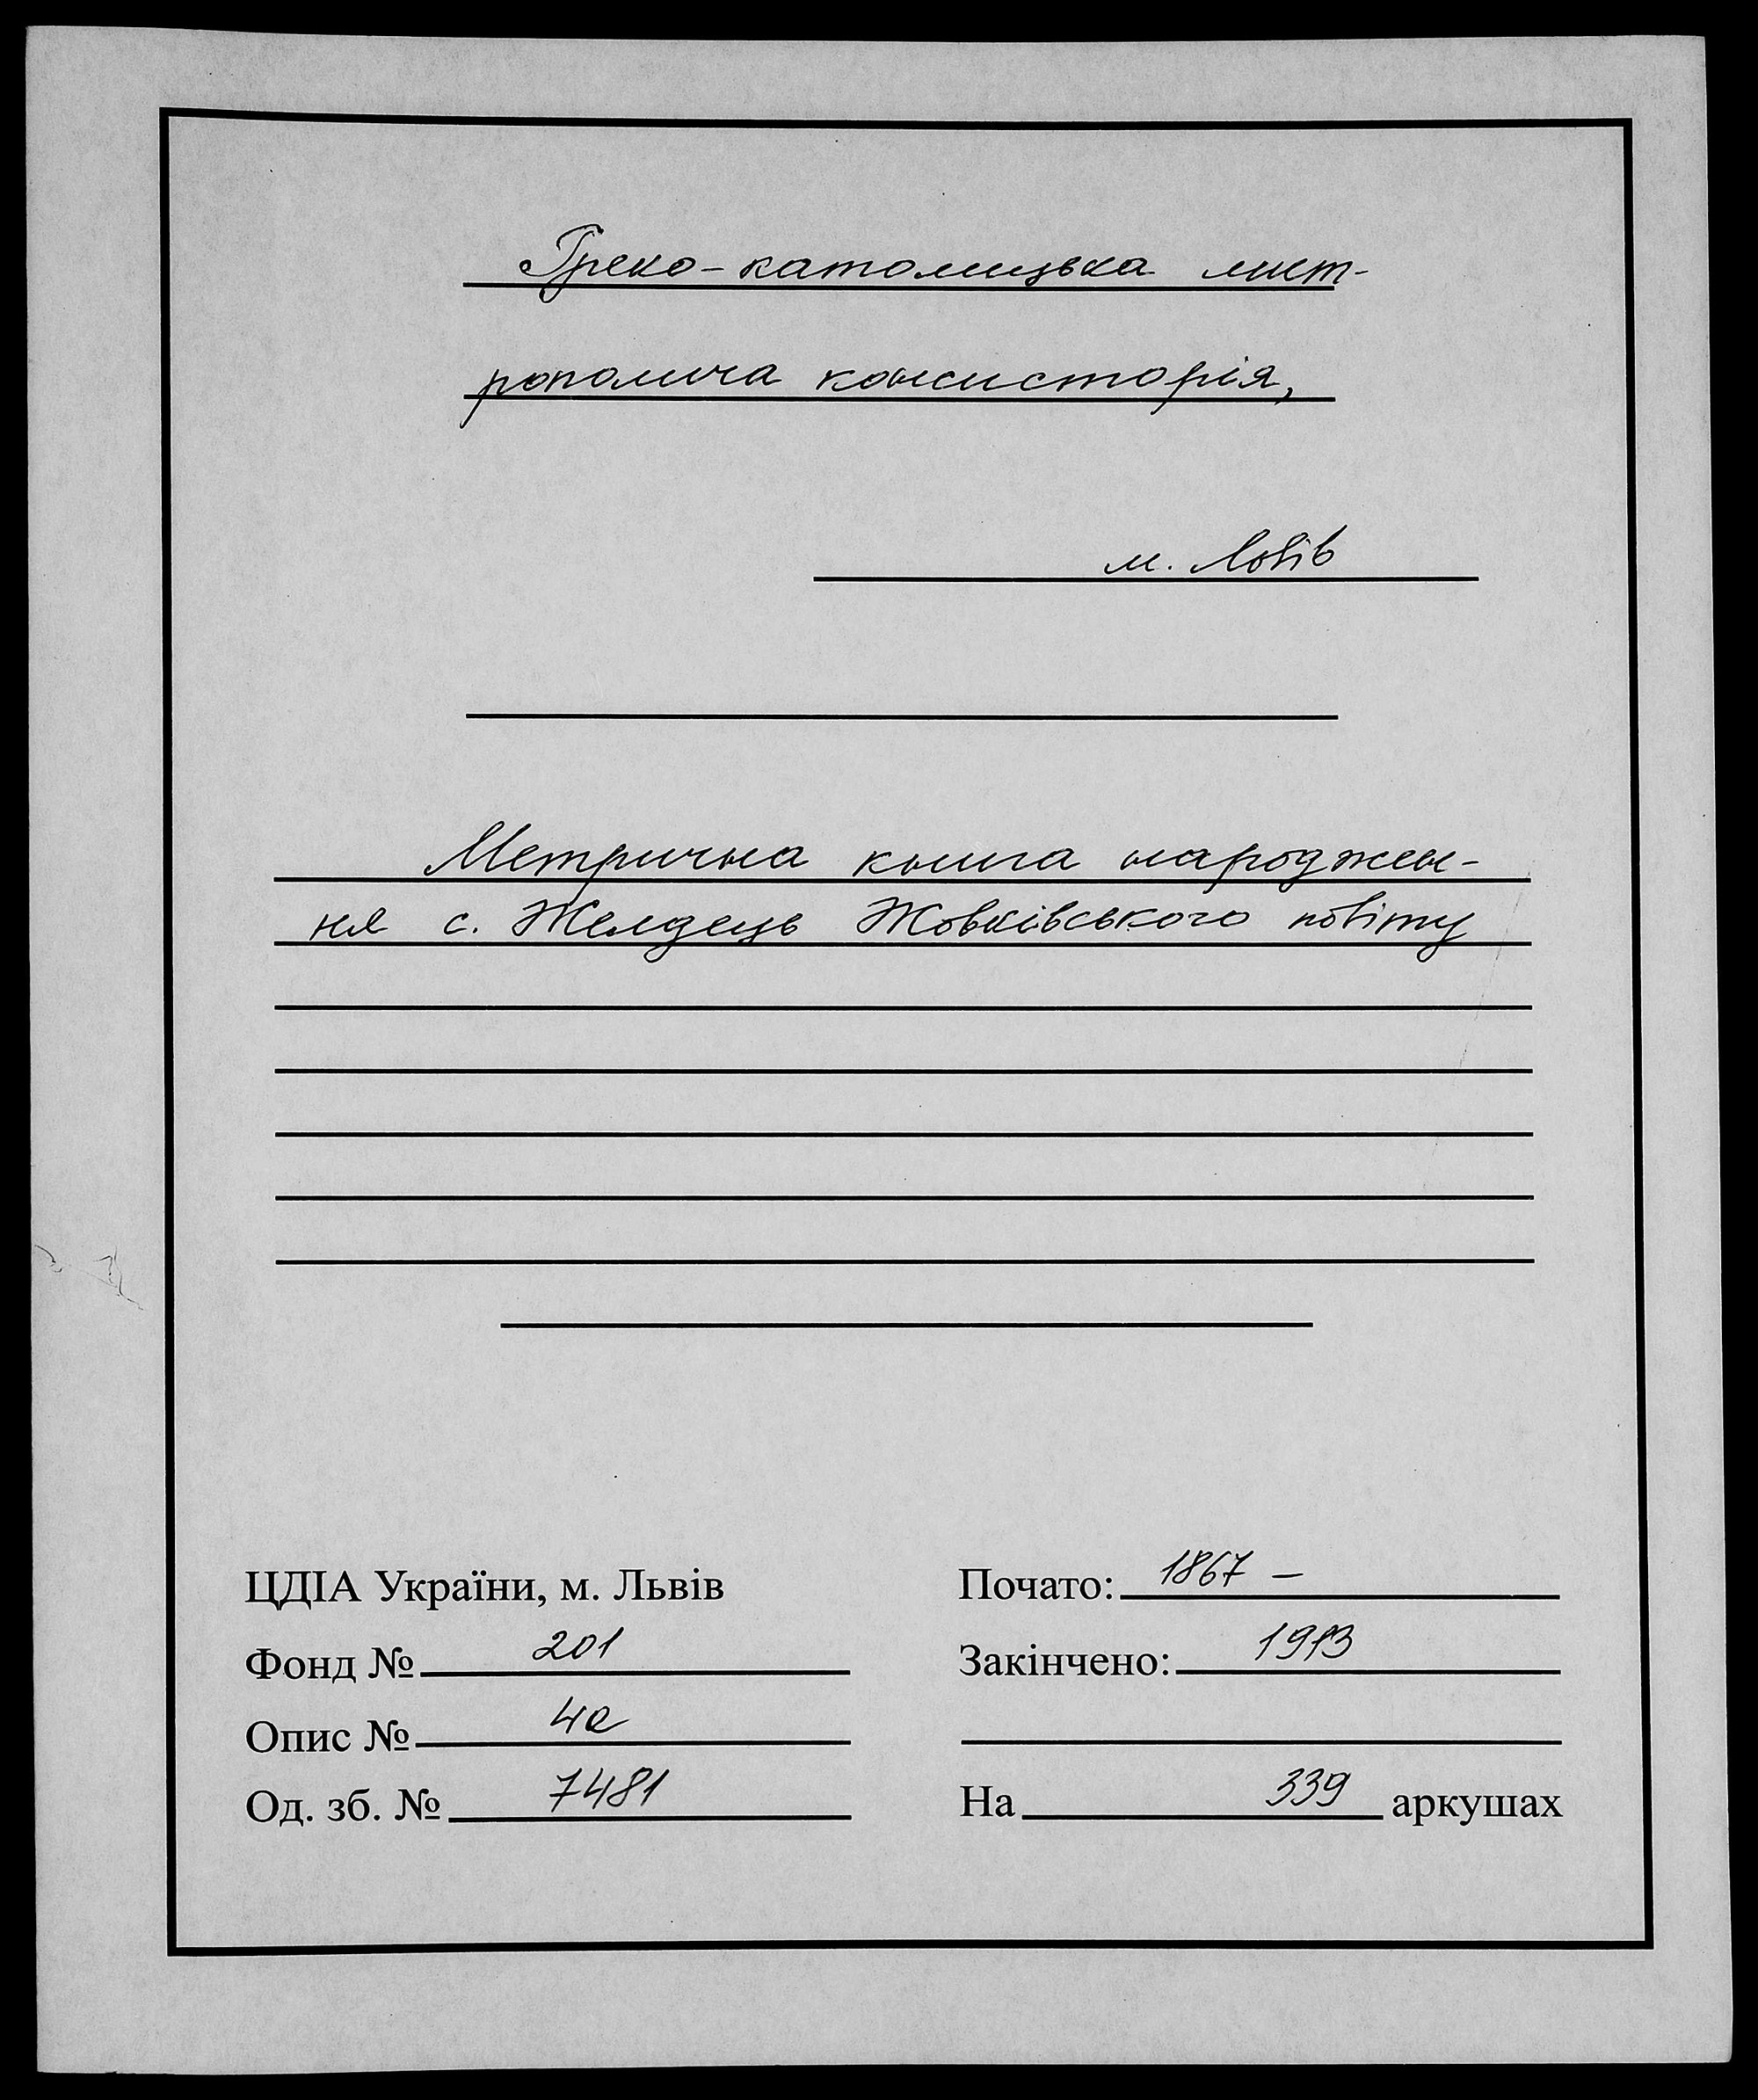 Греко-католицька мит-
рополича консисторія,
м. Львів
Метрична книга народжен-
ня с. Желдець Жовківського повіту
ЦДІА України, м. Львів
Почато: 1867 –
Фонд № 201
Закінчено: 1913
Опис № 4а
Од. зб. № 7481
На 339 аркушах